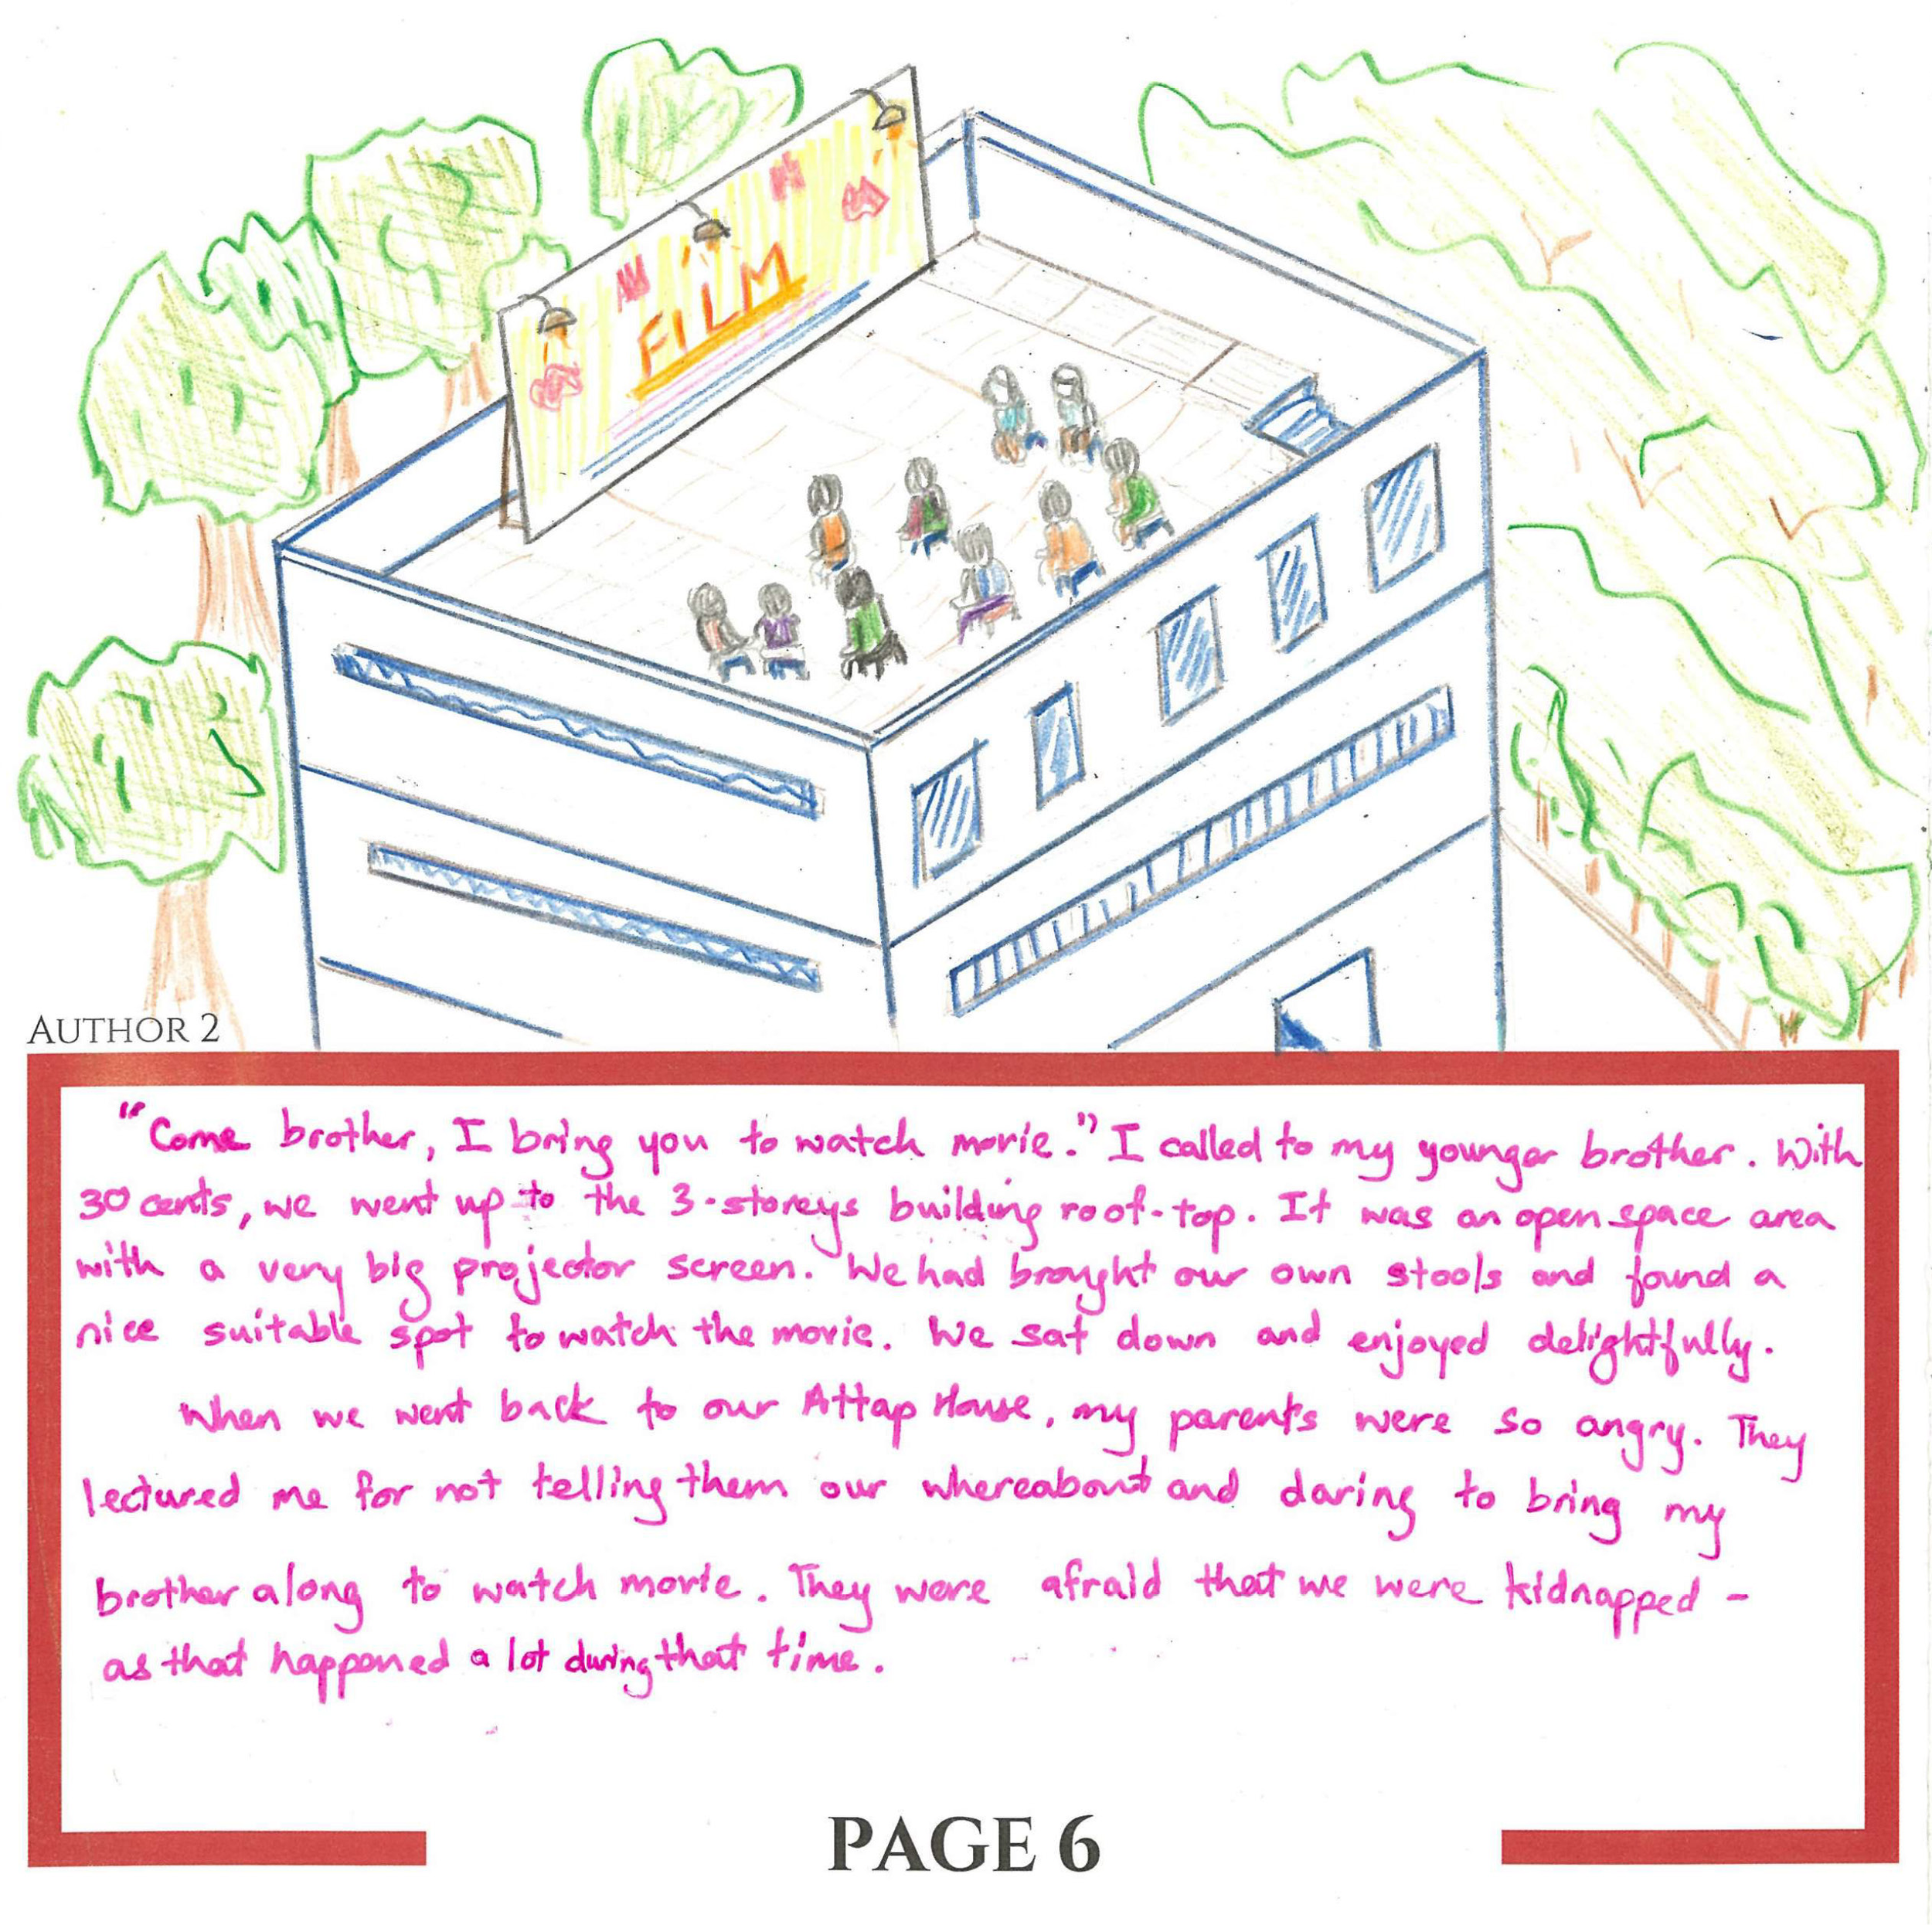 FILM
AUTHOR 2
"Come brother, I bring you to watch movie." I called to my younger brother. With
30 cents, we went up to the 3-storeys building roof-top. It was an open space area
with a very big projector screen. We had brought our own stools and found a
nice suitable spot to watch the movie. We sat down and enjoyed delightfully.
When we went back to our Attap House, my parents were so angry. They
lectured me for not telling them our whereabout and daring to bring my
brother along to watch movie. They were afraid that we were kidnapped -
as that happened a lot during that time.
PAGE 6